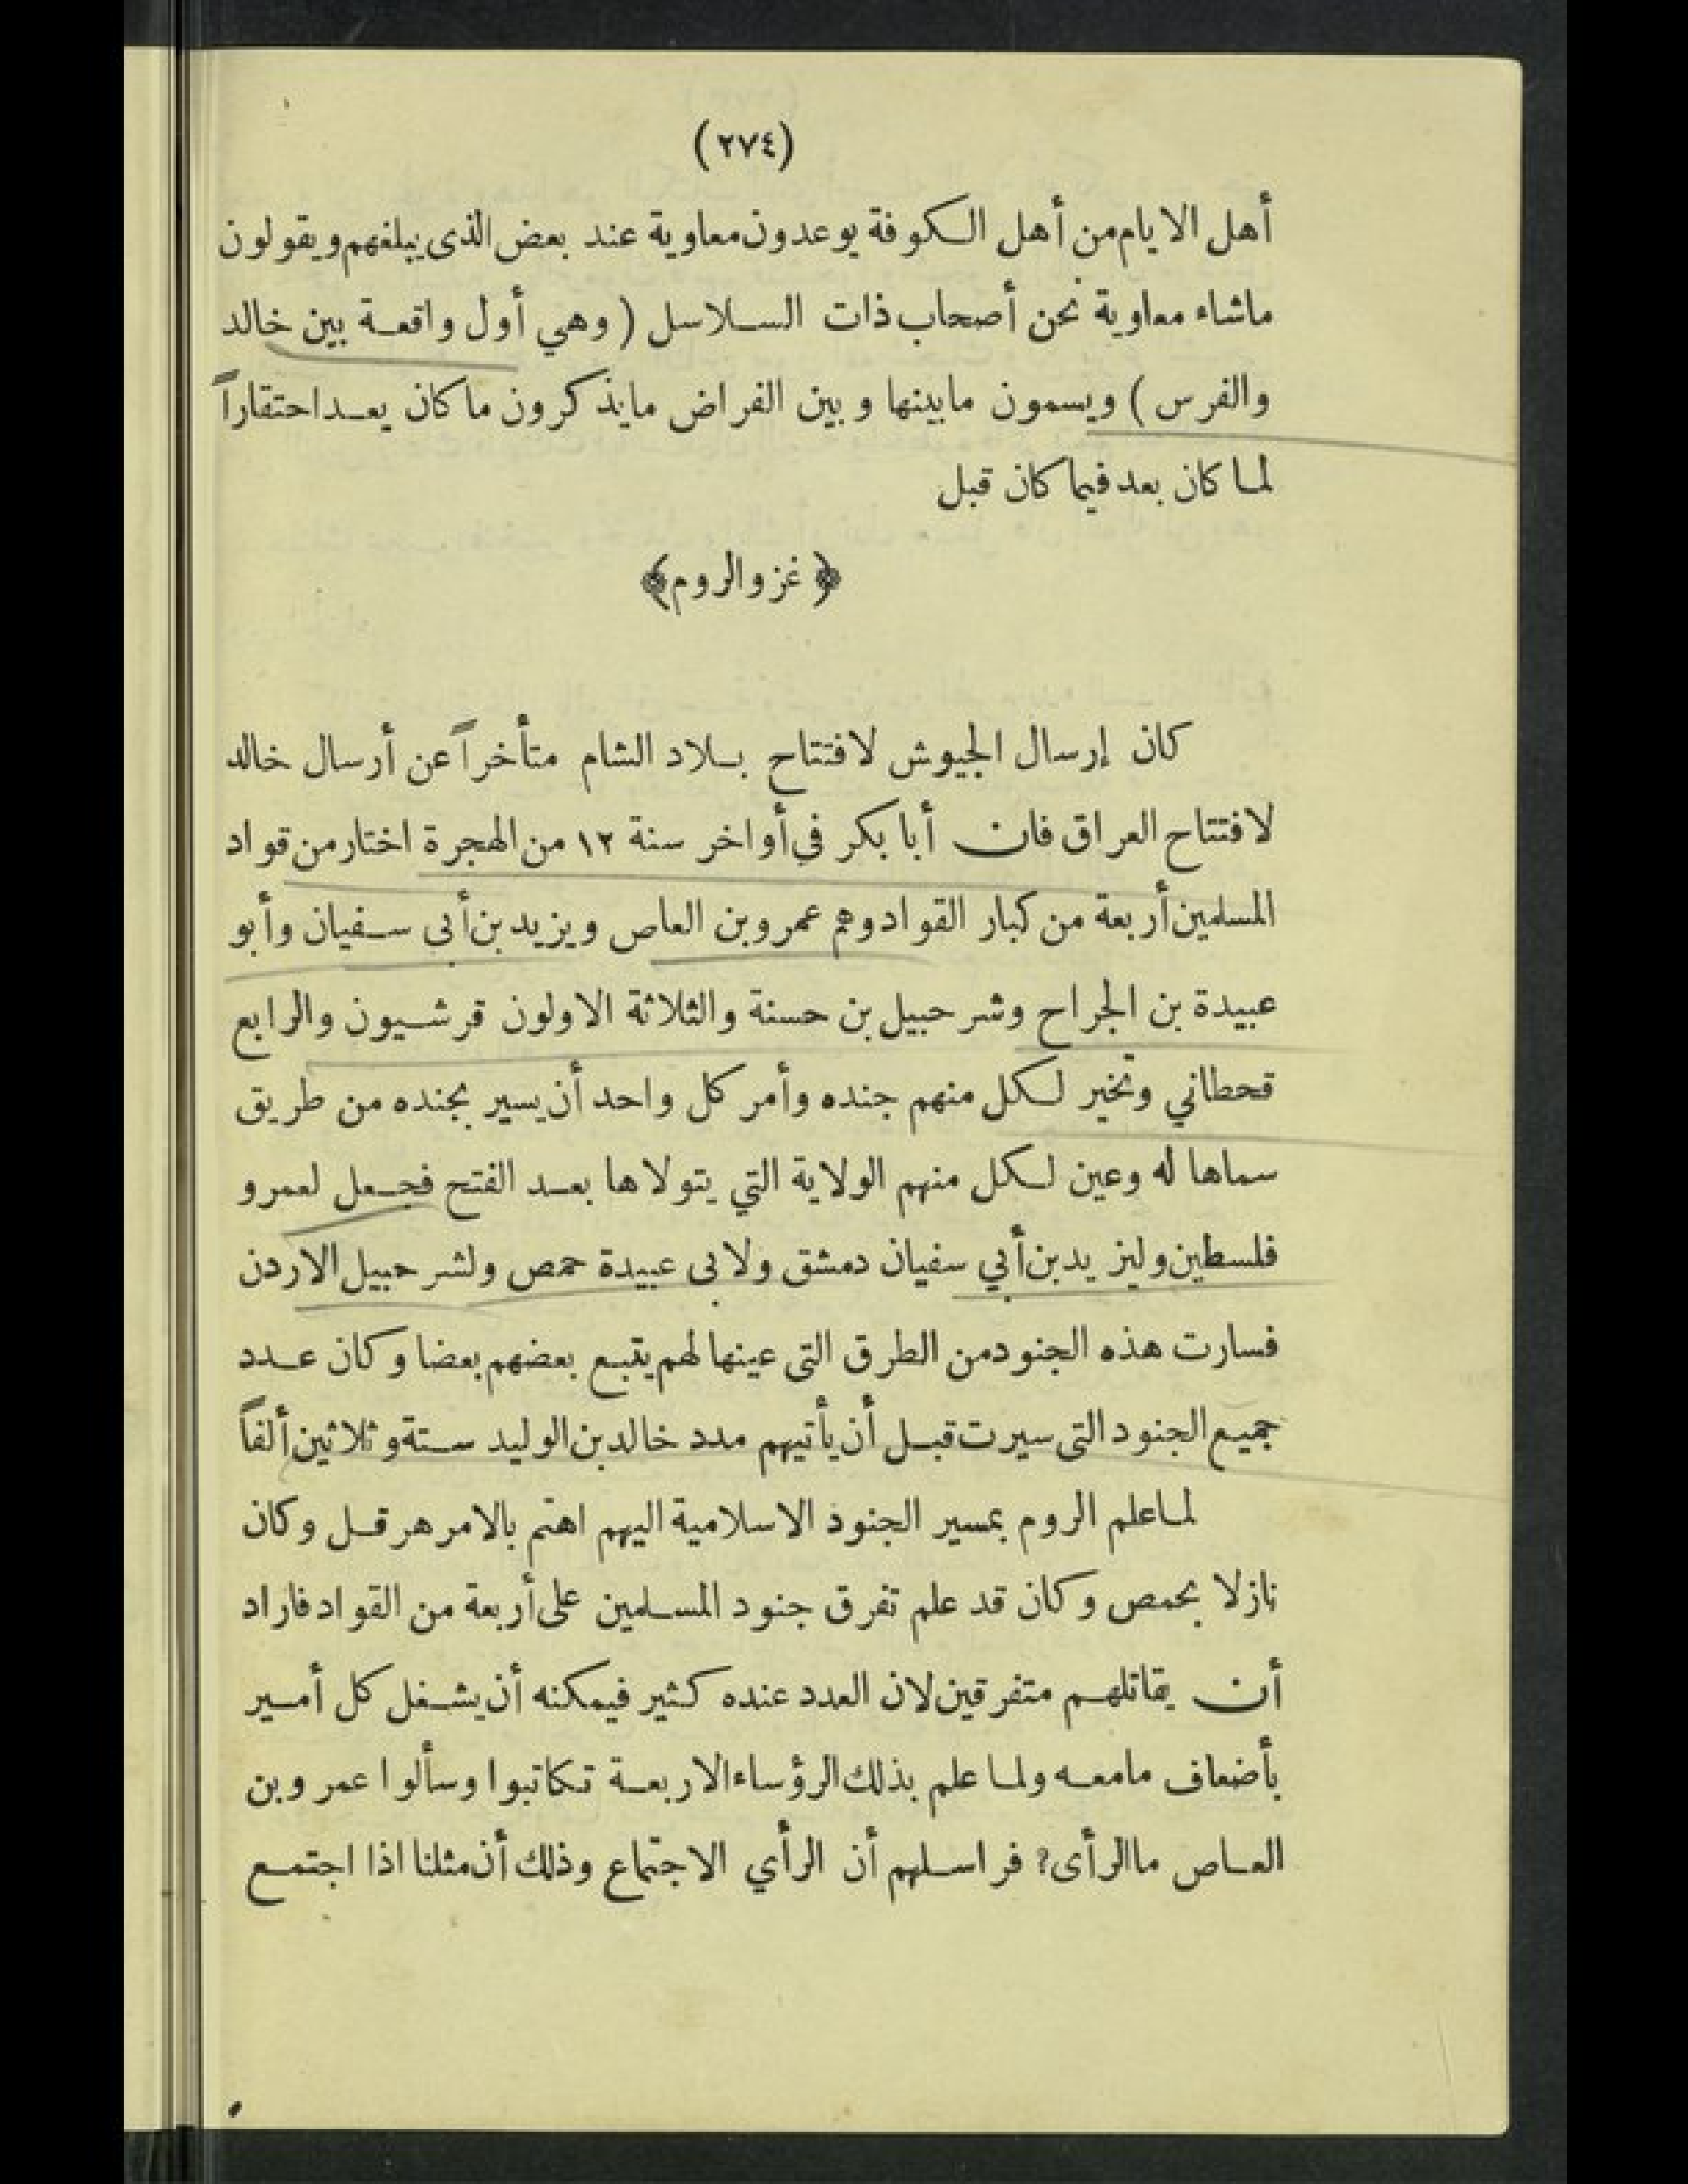 (٢٧٤)
أهل الايام من أهل الكوفة يوعدون معاوية عند بعض الذى يبلغهم ويقولون
ماشاء معاوية نحن أصحاب ذات السلاسل (وهي أول واقعة بين خالد
والفرس) ويسمون مابينها وبين الفراض مايذكرون ما كان بعد احتقاراً
لما كان بعد فيما كان قبل
﴿ غزو الروم ﴾
كان إرسال الجيوش لافتتاح بلاد الشام متأخراً عن أرسال خالد
لافتتاح العراق فان أبا بكر في أواخر سنة ١٢ من الهجرة اختار من قواد
المسلمين أربعة من كبار القواد وهم عمرو بن العاص ويزيد بن أبى سفيان وأبو
عبيدة بن الجراح وشرحبيل بن حسنة والثلاثة الاولون قرشيون والرابع
قحطاني وتخير لكل منهم جنده وأمر كل واحد أن يسير بجنده من طريق
سماها له وعين لكل منهم الولاية التي يتولاها بعد الفتح فجعل لعمرو
فلسطين وليزيد بن أبي سفيان دمشق ولابى عبيدة حمص ولشرحبيل الاردن
فسارت هذه الجنود من الطرق التى عينها لهم يتبع بعضهم بعضا وكان عدد
جميع الجنود التى سيرت قبل أن يأتيهم مدد خالد بن الوليد ستة وثلاثين ألفاً
لما علم الروم بمسير الجنود الاسلامية اليهم اهتم بالامر هرقل وكان
نازلا بحمص وكان قد علم تفرق جنود المسلمين على أربعة من القواد فاراد
أن يقاتلهم متفرقين لان العدد عنده كثير فيمكنه أن يشغل كل أمير
بأضعاف مامعه ولما علم بذلك الرؤساء الاربعة تكاتبوا وسألوا عمرو بن
العاص ما الرأى؟ فراسلهم أن الرأي الاجتماع وذلك أن مثلنا اذا اجتمع